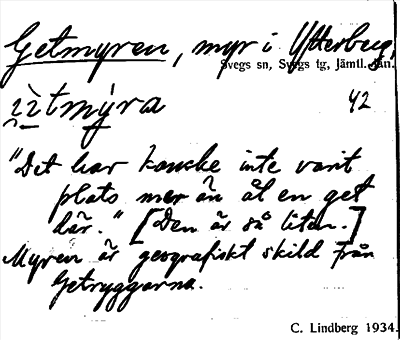 Getmyren, myr i Ytterberg,
Svegs sn, Svegs tg, Jämtl. län.
42
"Det har kanske inte varit
plats mer än åt en get
där." [Den är så liten.]
Myren är geografiskt skild från
Getryggarna.
C. Lindberg 1934.